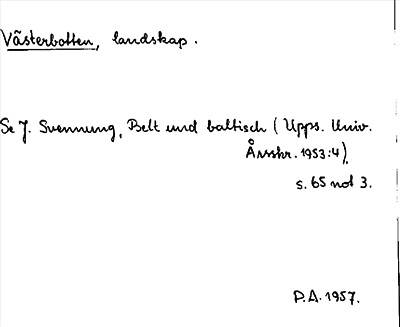 Västerbotten, landskap.
Se J. Svennung, Belt und baltisch (Upps. Univ.
Årsskr. 1953:4).
s. 65 not 3.
P.A. 1957.